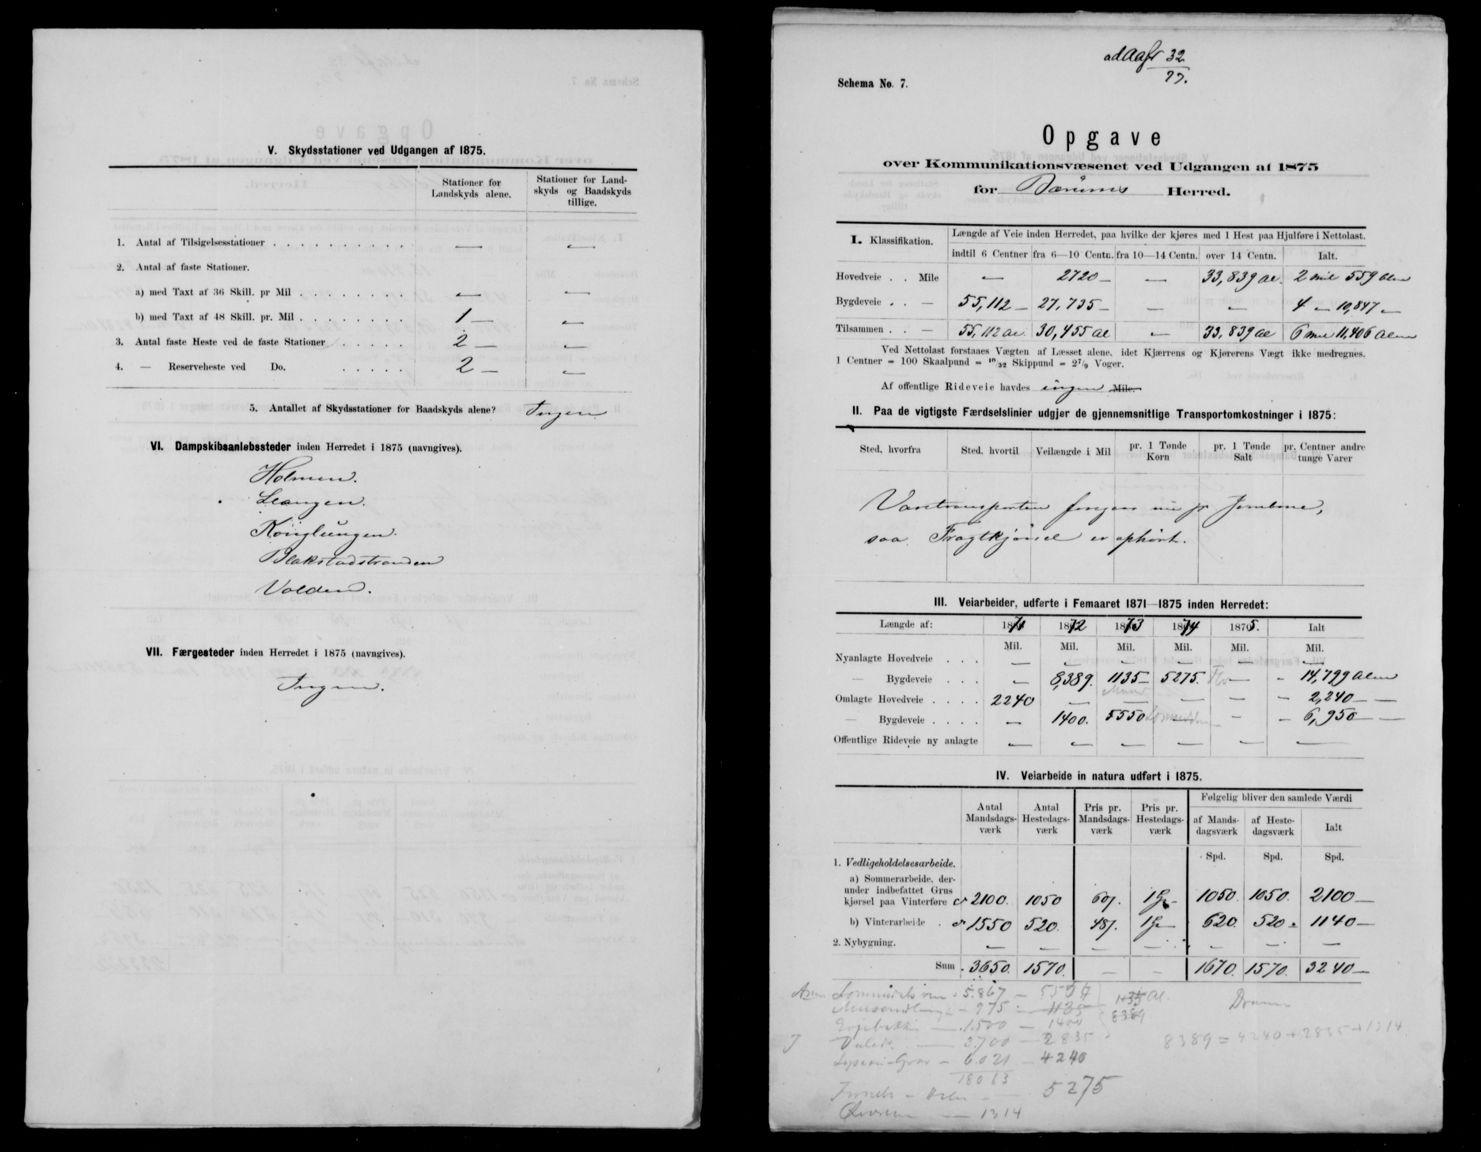 V. Skydsstationer ved Udgangen af 1875.
Stationer for Landskyds alene. Stationer for Landskyds og Baadskyds tillige.
1. Antal af Tilsigelsesstationer — —
2. Antal af faste Stationer.
a) med Taxt af 36 Skill. pr Mil — —
b) med Taxt af 48 Skill. pr. Mil 1 — —
3. Antal faste Heste ved de faste Stationer 2 — —
4. — Reserveheste ved Do. 2 — —
5. Antallet af Skydsstationer for Baadskyds alene? Ingen
VI. Dampskibsanløbssteder inden Herredet i 1875 (navngives).
Holmen.
Leangen.
Konglungen.
Blakstadstranden
Volden.
VII. Færgesteder inden Herredet i 1875 (navngives).
Ingen.
ad Aafl 32
77.
Schema No. 7.
Opgave
over Kommunikationsvæsenet ved Udgangen af 1875
for Bærums Herred.
I. Klassifikation. Længde af Veie inden Herredet, paa hvilke der kjøres med 1 Hest paa Hjulføre i Nettolast.
indtil 6 Centner fra 6—10 Centn. fra 10—14 Centn. over 14 Centn. Ialt.
Hovedveie . . Mile — 2720 — — 33,839 al. 2 mil 559 alen
Bygdeveie . . — 55,112 — 27,735 — — — 4 — 10,847 —
Tilsammen . . — 55,112 al. 30,455 al — 33,839 al 6 mil 11,406 alen
Ved Nettolast forstaaes Vægten af Læsset alene, idet Kjærrens og Kjørerens Vægt ikke medregnes.
1 Centner = 100 Skaalpund = 10/32 Skippund = 2 7/9 Voger.
Af offentlige Rideveie havdes ingen Mile.
II. Paa de vigtigste Færdselslinier udgjør de gjennemsnitlige Transportomkostninger i 1875:
Sted, hvorfra Sted, hvortil Veilængde i Mil pr. 1 Tønde Korn pr. 1 Tønde Salt pr. Centner andre tunge Varer
Varetransporten foregaar nu pr Jernbane,
saa Fragtkjørsel er ophørt.
III. Veiarbeider, udførte i Femaaret 1871—1875 inden Herredet:
Længde af: 1871 1872 1873 1874 1875. Ialt
Mil. Mil. Mil. Mil. Mil. Mil.
Nyanlagte Hovedveie . . . — — — — — —
— Bygdeveie . . . . — 8,389. 1135 — 5275. — 14,799 Alen
Omlagte Hovedveie . . . . 2240 — — — — 2,240 —
— Bygdeveie . . . . — 1400. 5550 — — 6,950 —
Offentlige Rideveie ny anlagte — — — — — —
IV. Veiarbeide in natura udført i 1875.
Antal Mandsdagsværk Antal Hestedagsværk Pris pr. Mandsdagsværk Pris pr. Hestedagsværk Følgelig bliver den samlede Værdi
af Mandsdagsværk af Hestedagsværk Ialt
Spd. Spd. Spd.
1. Vedligeholdelsesarbeide.
a) Sommerarbeide, derunder indbefattet Gruskjørsel paa Vinterføre 2100. 1050 60 1 1050. 1050. 2100 —
b) Vinterarbeide . 1550 520. 48 1 620. 520 1140 —
2. Nybygning. — — — — — — —
Sum 3650. 1570. — — 1670. 1570. 3240 —
5.867 —
975
1500 — 1400
3.700 — 2835
6.021 — 4240
18063
8389 = 4240 + 2835 + 1314
5275
1314